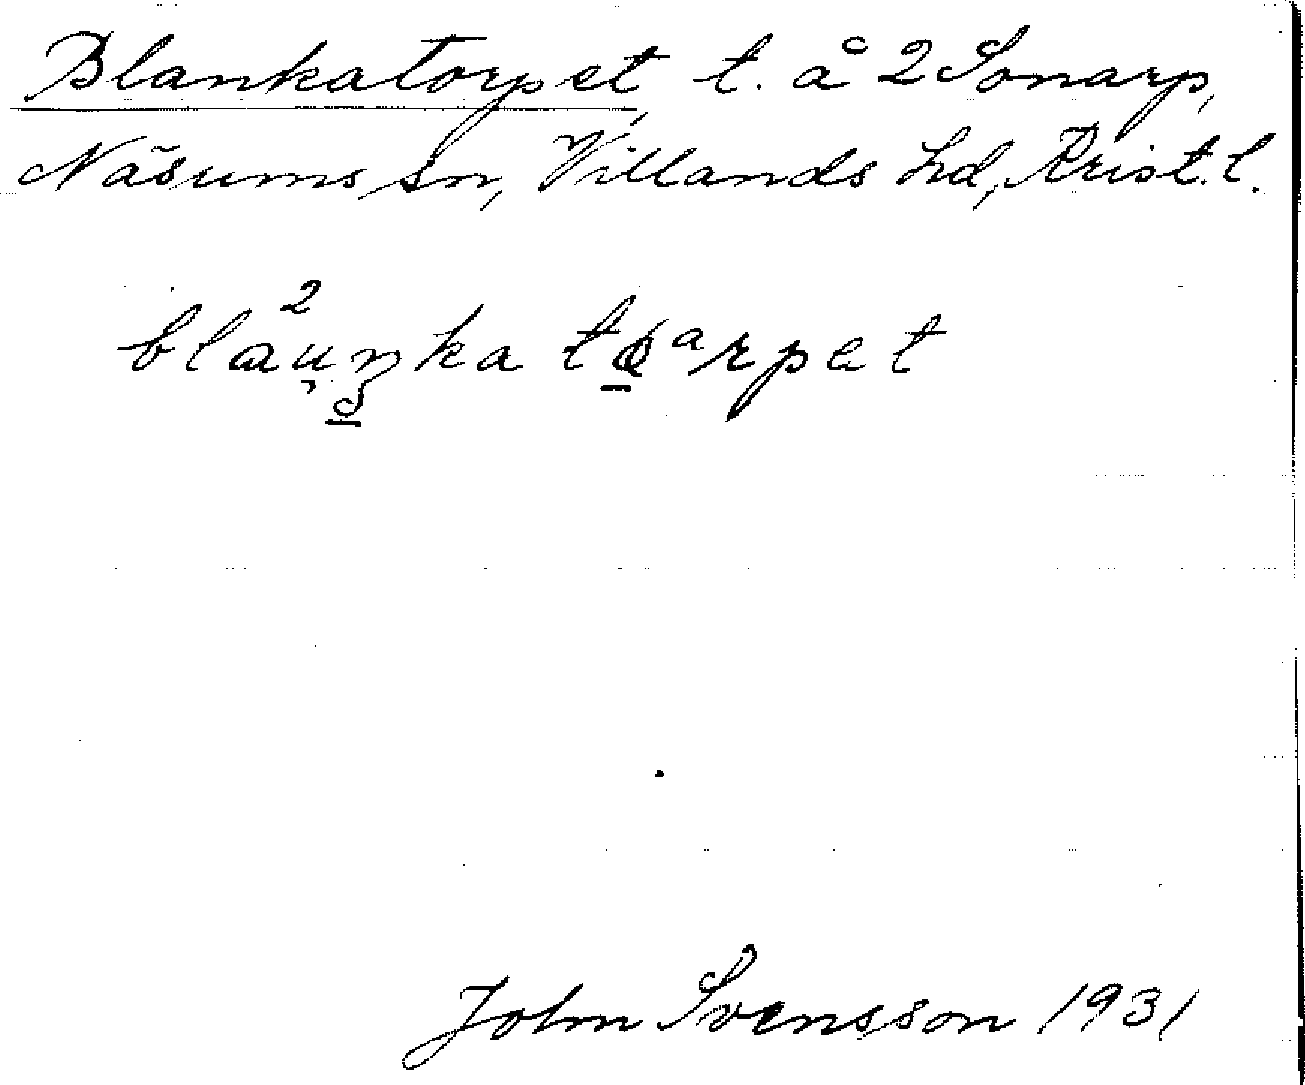 Blankatorpet t. å 2 Sonarp,
Näsums sn, Villands hd, Krist. l.
bla²u̯ŋka tɔᵃrpet
John Svensson 1931